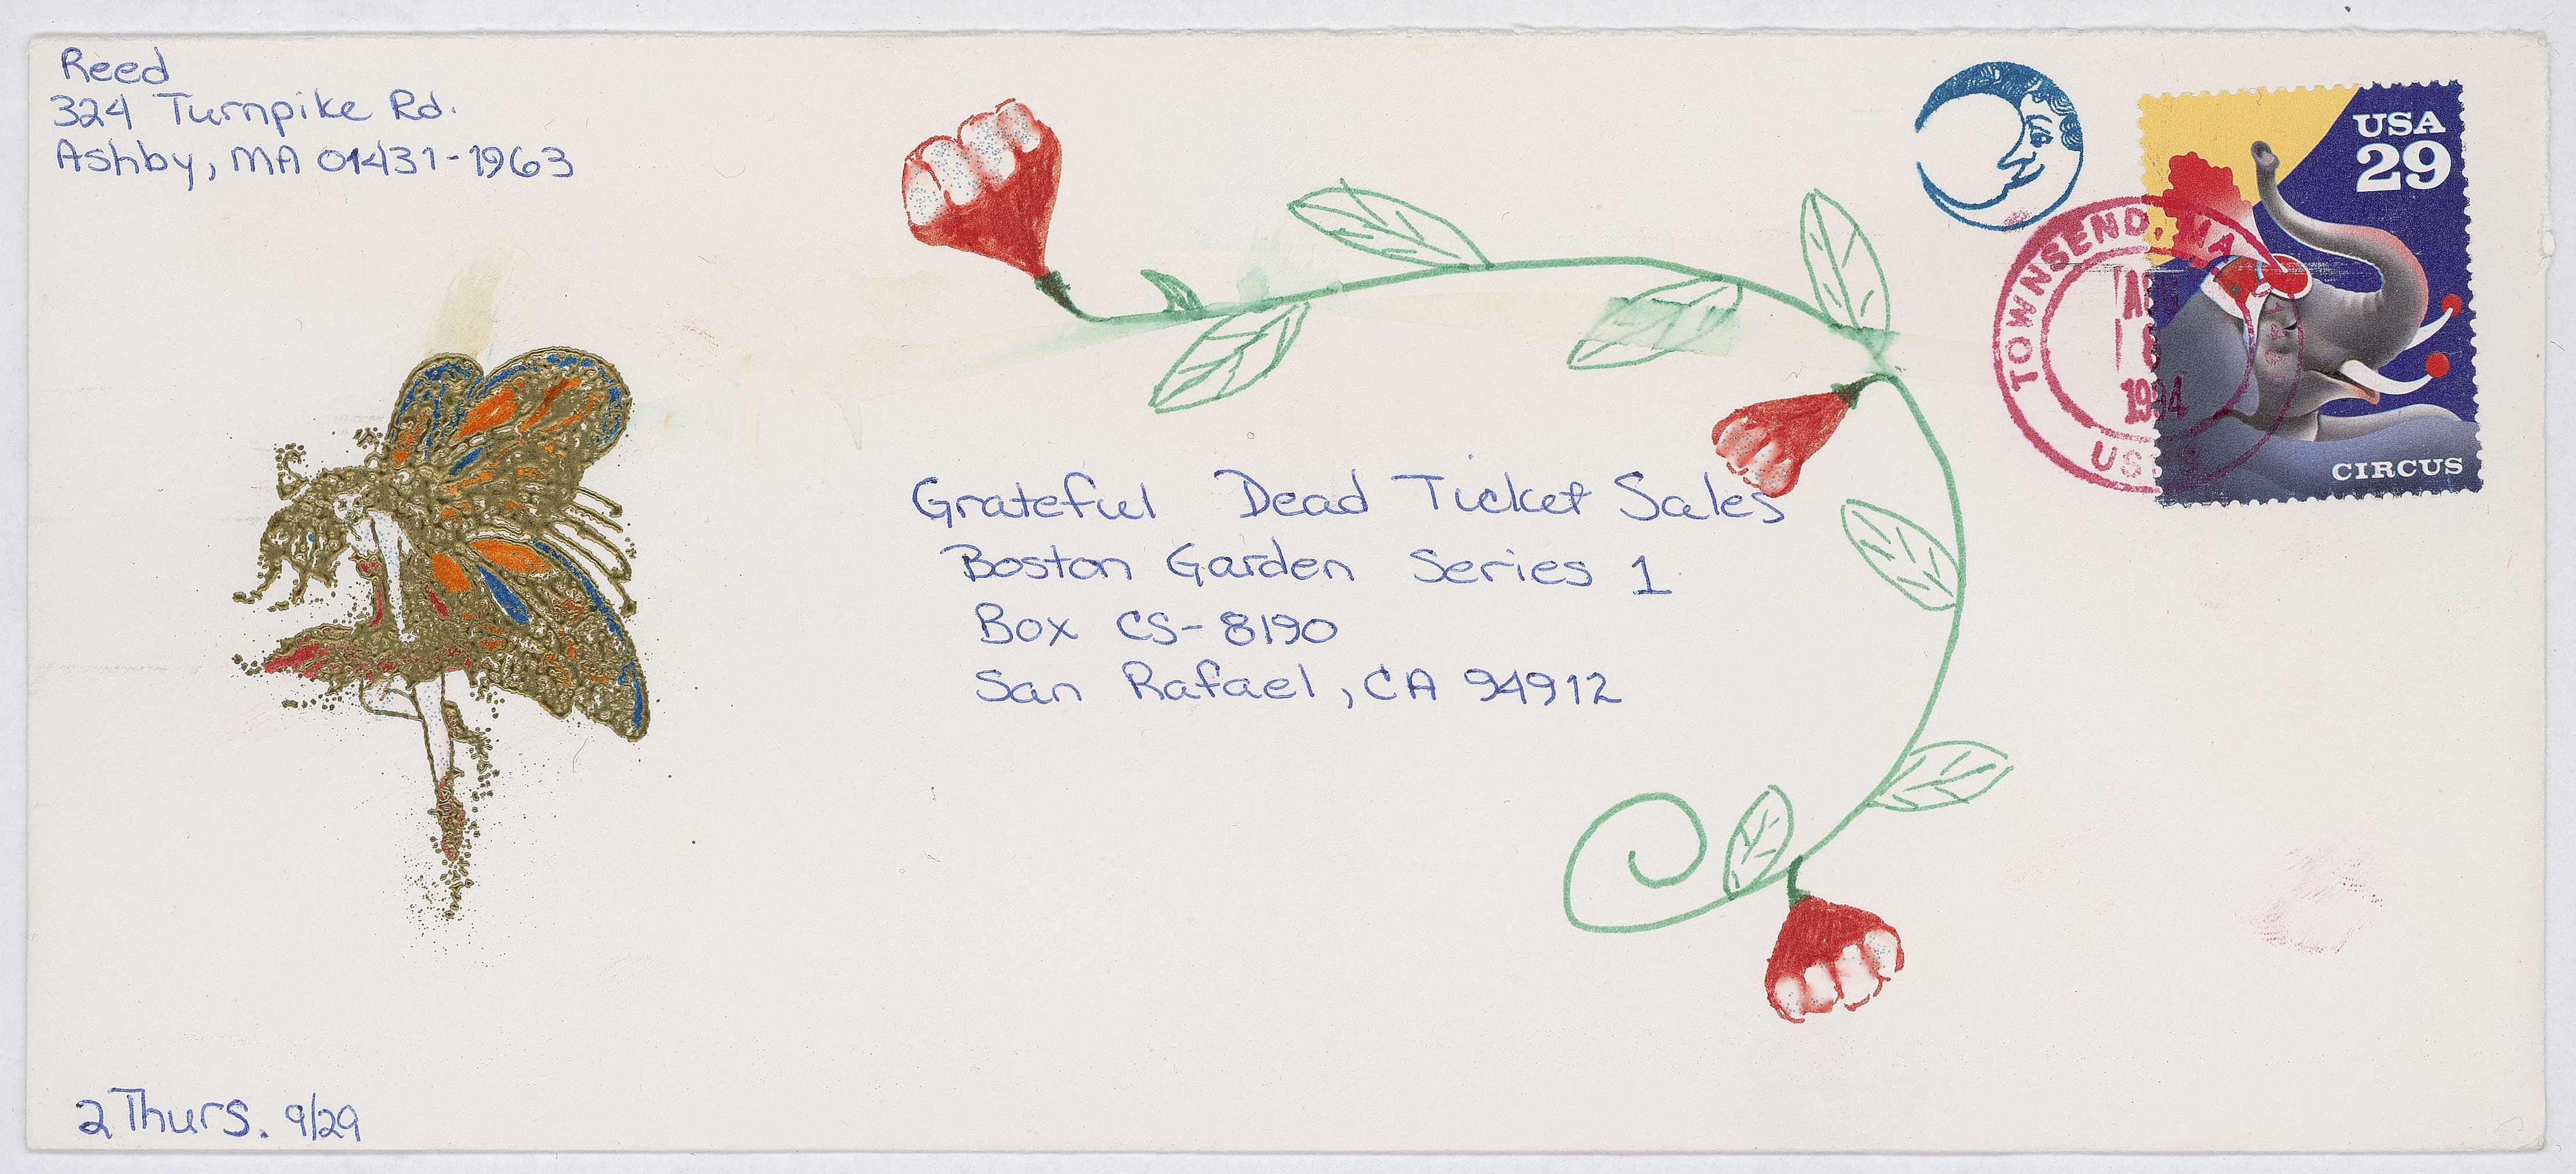 Reed
324 Turnpike Rd.
Ashby, MA 01431-1963
USA
29
TOWNSEND, MA
AUG
1994
CIRCUS
Grateful Dead Ticket Sales
Boston Garden Series 1
Box CS-8190
San Rafael, CA 94912
2 Thurs. 9/29